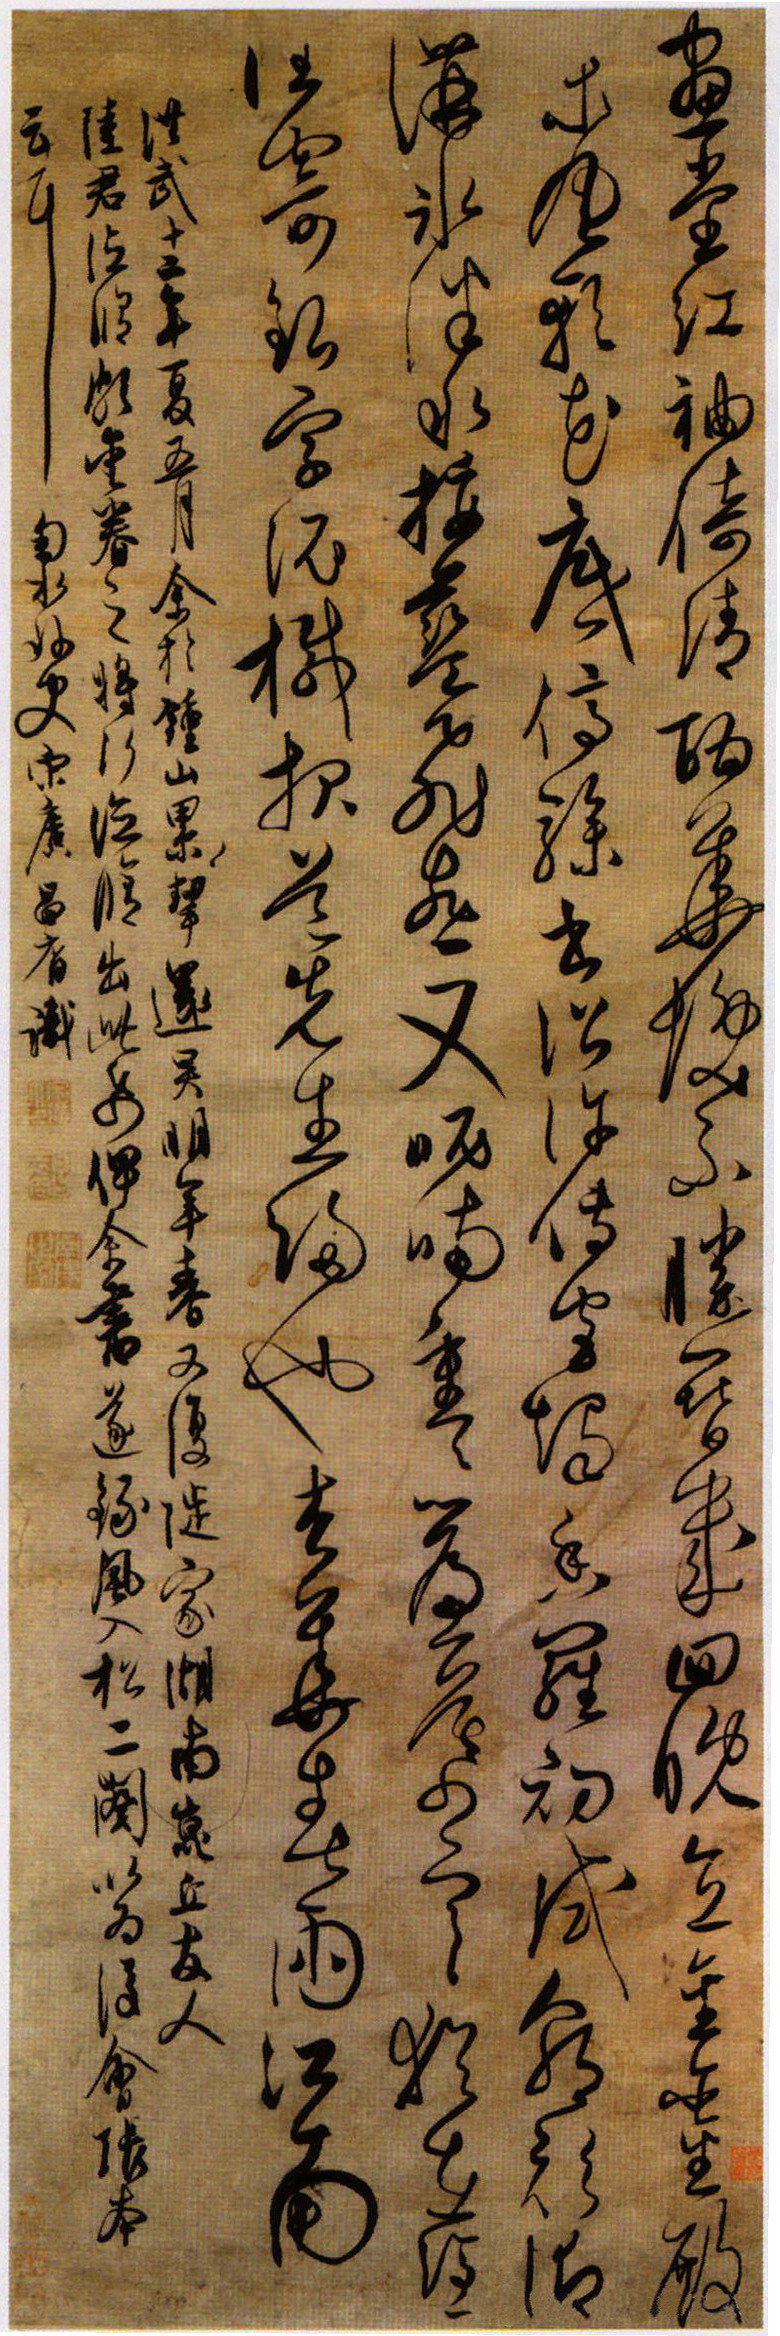 畫堂紅袖倚清酣華髮不勝簪幾回晚直金鑾殿
東風軟花底停驂書詔許傳宮燭香羅初試朝衫御
溝冰泮水挼藍飛燕又呢喃重重簾幕寒猶在憑
誰寄銀字泥緘報道先生歸也杏華春雨江南
洪武十二年夏五月余於鍾山累挈還吳明年春又復徙家湖南嵩丘友人
陸君德脩頗眷眷之將行德脩出此俾余書遂錄風入松二闋以為後會張本
云耳 史宋廣昌裔識